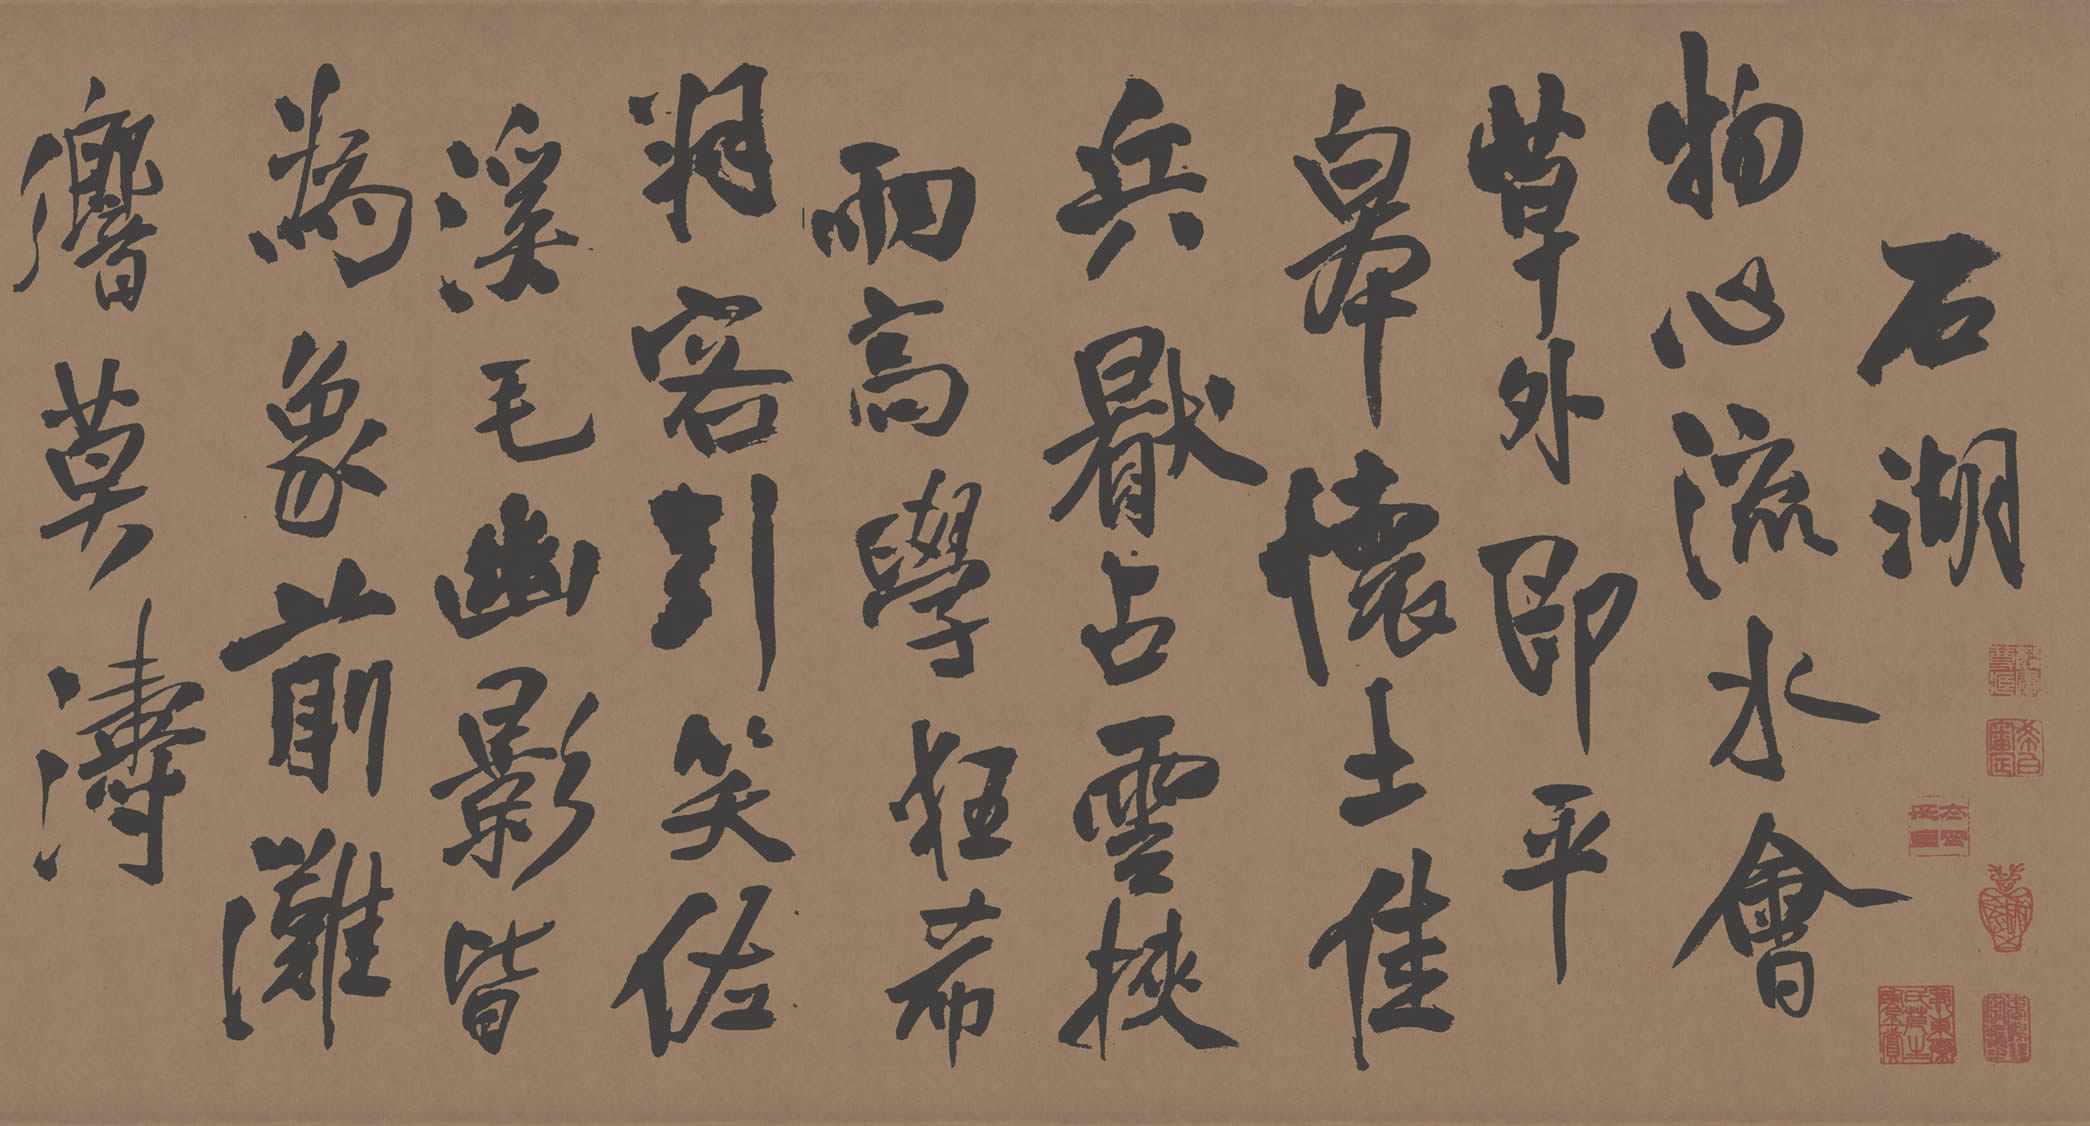 石湖
物心流水會
草外即平
皋懷土佳
兵厭占雲挾
雨高學狂希
朔客引笑佐
溪毛幽影皆
為象前灘
響莫濤